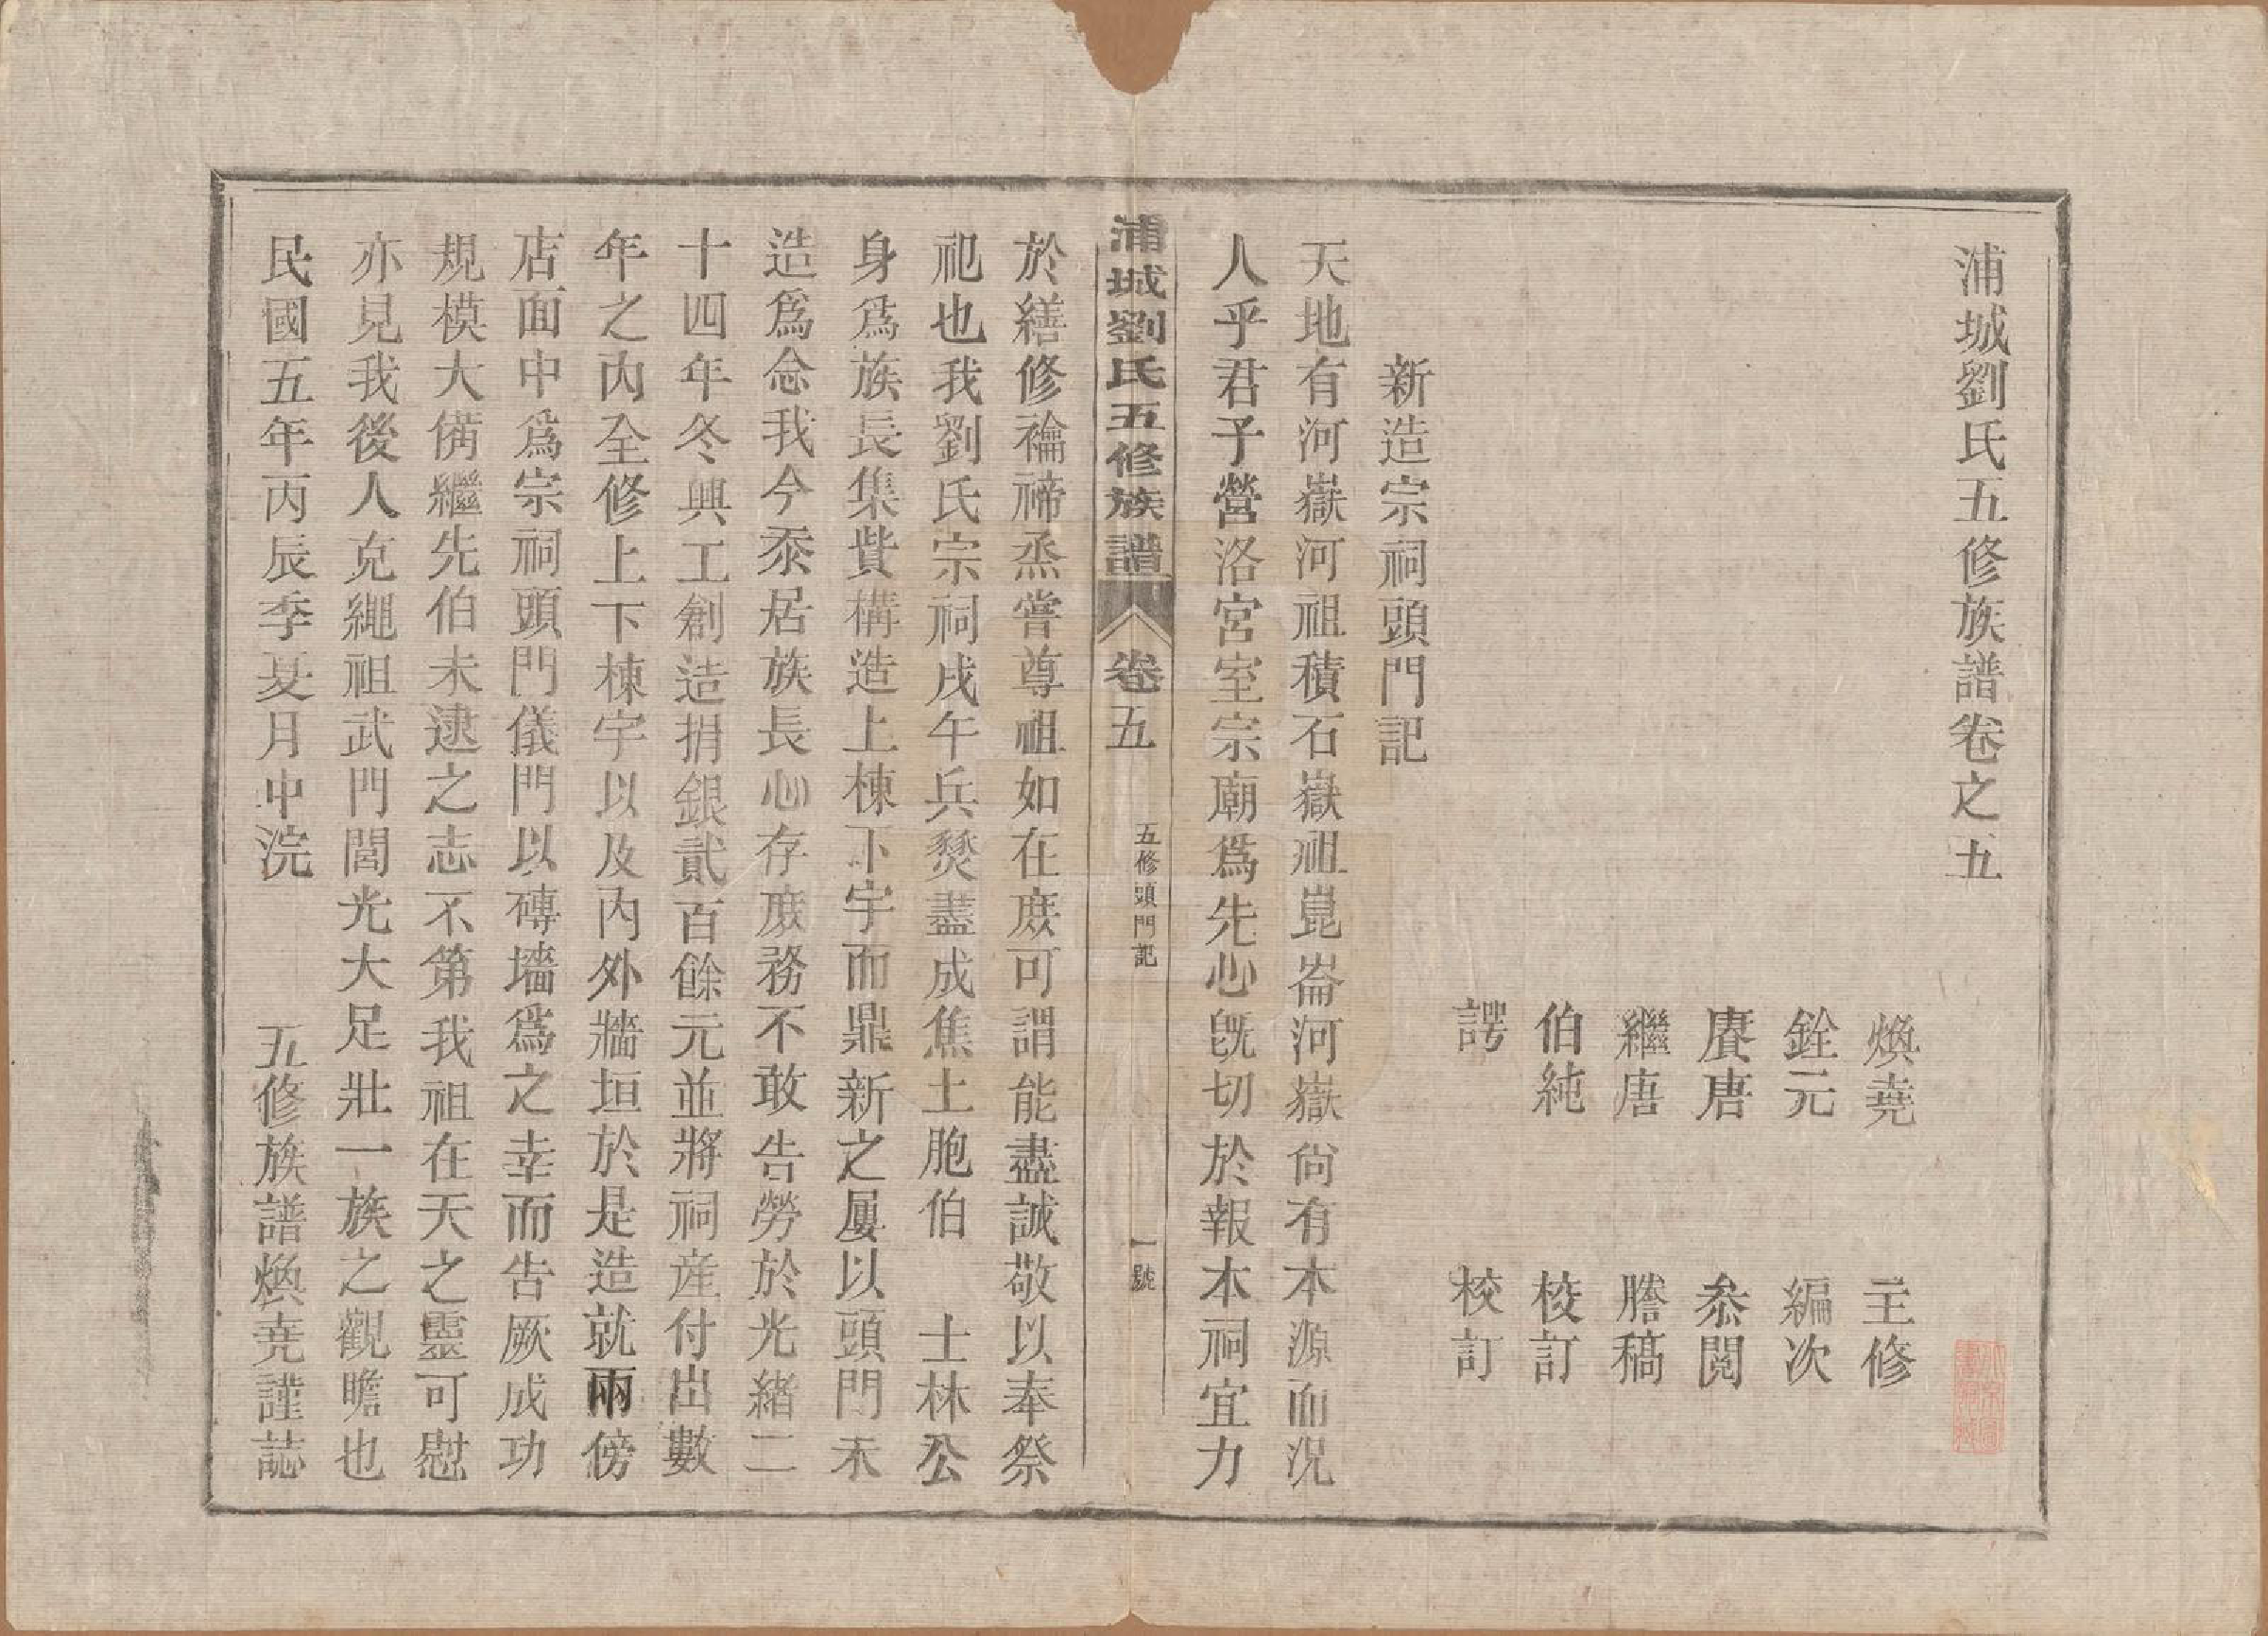 浦城劉氏五修族譜卷之五
煥堯　主修
銓元　編次
賡唐　叅閱
繼唐　謄稿
伯純　校訂
諤　校訂
新造宗祠頭門記
天地有河嶽河祖積石嶽祖崑崙河嶽尙有本源而況
人乎君子營洛宮室宗廟爲先心旣切於報本祠宜力
浦城劉氏五修族譜　卷五　五修頭門記　一號
於繕修禴禘烝嘗尊祖如在庶可謂能盡誠敬以奉祭
祀也我劉氏宗祠戌午兵燹盡成焦土胞伯　士林公
身爲族長集貲構造上棟下宇而鼎新之屢以頭門未
造爲念我今忝居族長心存庶務不敢告勞於光緒二
十四年冬興工創造捐銀貳百餘元並將祠産付出數
年之內全修上下棟宇以及內外牆垣於是造就兩傍
店面中爲宗祠頭門儀門以磚墻爲之幸而告厥成功
規模大備繼先伯未逮之志不第我祖在天之靈可慰
亦見我後人克繩祖武門閭光大足壯一族之觀瞻也
民國五年丙辰季夏月中浣　五修族譜煥堯謹誌